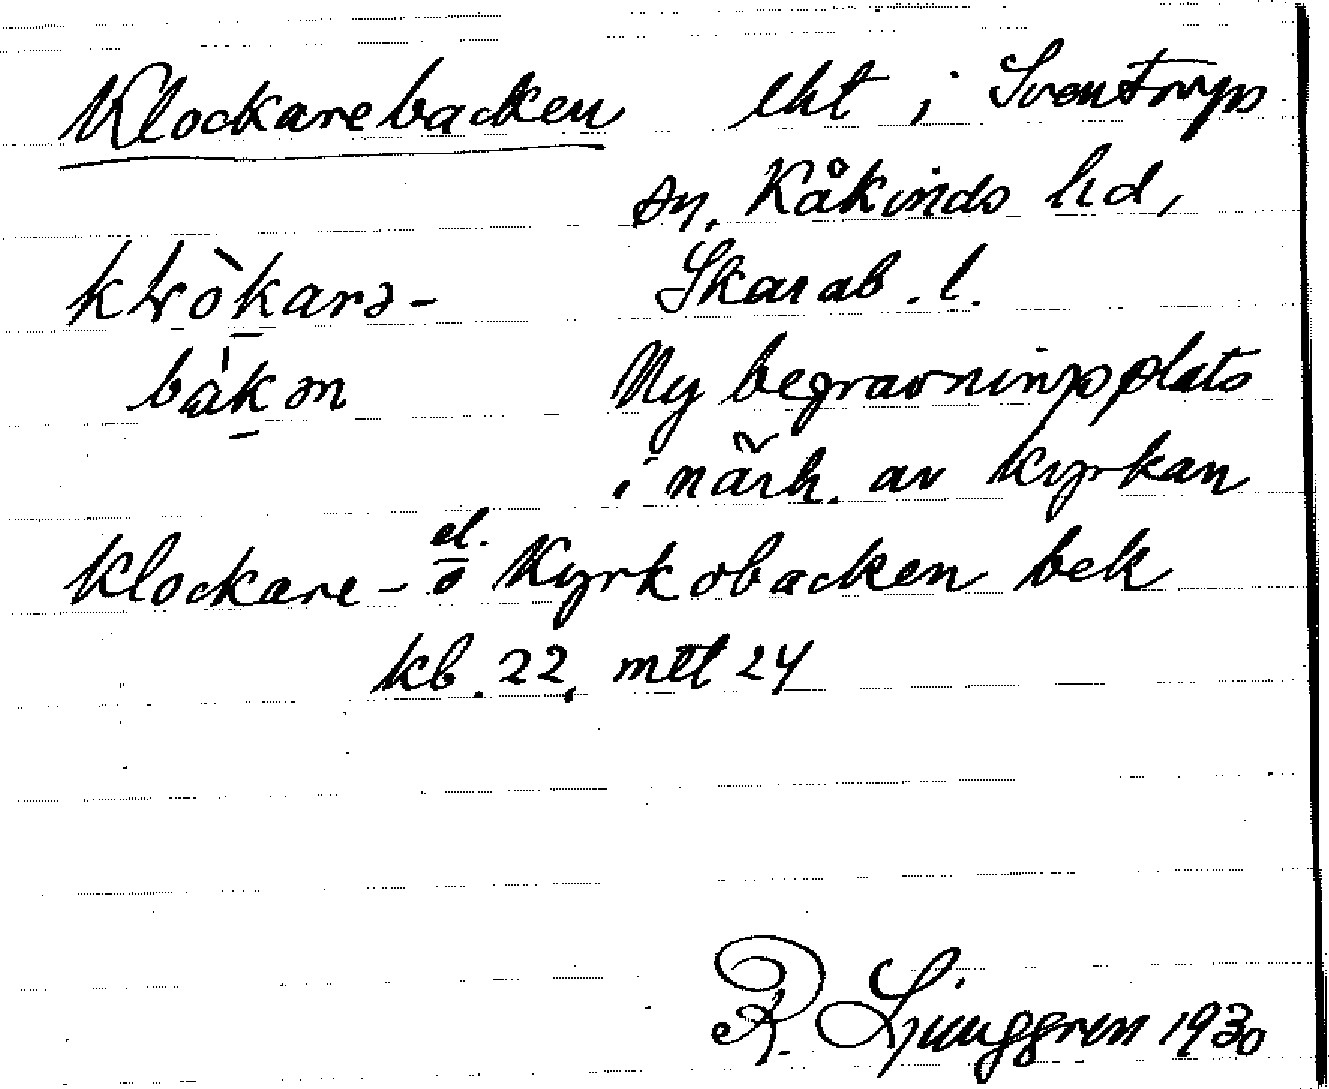 Klockarebacken lht i Sventorps
sn. Kåkinds hd,
Skarab. l.
klòkarə-
bàkən
Ny begravningsplats
i närh. av kyrkan
Klockare- el. Kyrkobacken bek
kb. 22, mtl 24
R. Ljunggren 1930